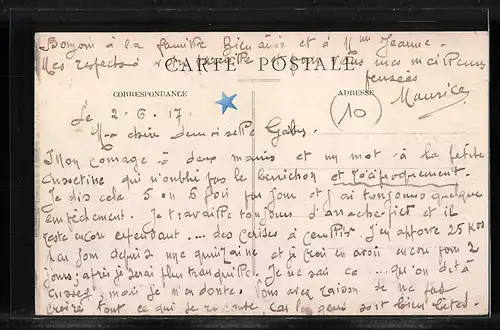 Bonjour à la famille Bienaimé et à Mme Jeanne.
Mes respects à votre famille et pour vous mes meilleures
pensées
CARTE POSTALE
CORRESPONDANCE
ADRESSE
Maurice
10
Le 2.6.17.
Ma chère Demoiselle Gaby.
Mon courage à deux mains et un mot à la petite
qui n'oublie pas le berrichon et réciproquement.
Je dis cela 5 ou 6 fois par jour et j'ai toujours quelque
empêchement. Je travaille toujours d'arrache et il
reste encore cependant .... des cerises à cueillir. J'en apporte 25 Kos
par jour depuis une quinzaine et je crois en avoir encore pour 2
jours; après je serai plus tranquille. Je ne sais ce .... qu'on dit à
mais je m'en doute. Vous avez raison de ne pas
croire tout ce qui se raconte, car les gens sont bien bêtes.